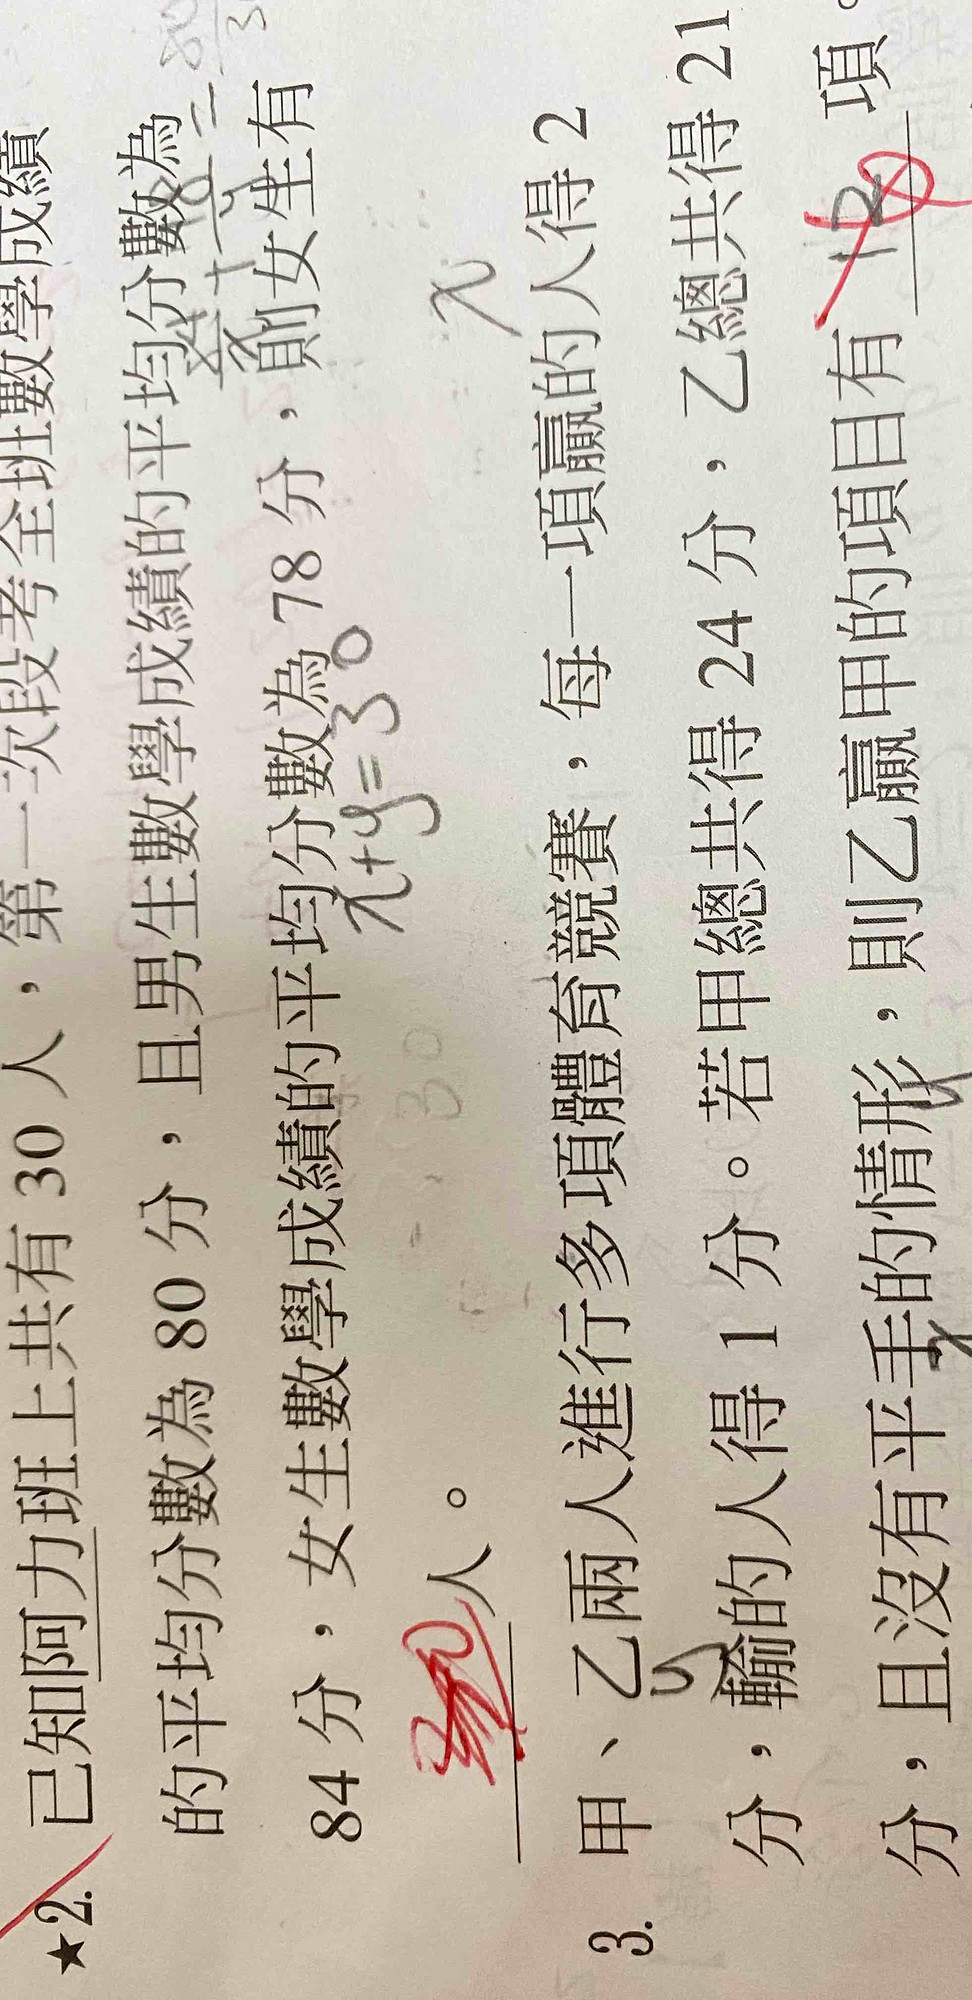 ★2. 已知阿力班上共有 30 人，第一次段考全班數學成績
的平均分數為 80 分，且男生數學成績的平均分數為
84 分，女生數學成績的平均分數為 78 分，則女生有
人。
x+y=30
x
3. 甲、乙兩人進行多項體育競賽，每一項贏的人得 2
分，輸的人得 1 分。若甲總共得 24 分，乙總共得 21
y
分，且沒有平手的情形，則乙贏甲的項目有 12 項。
x
y